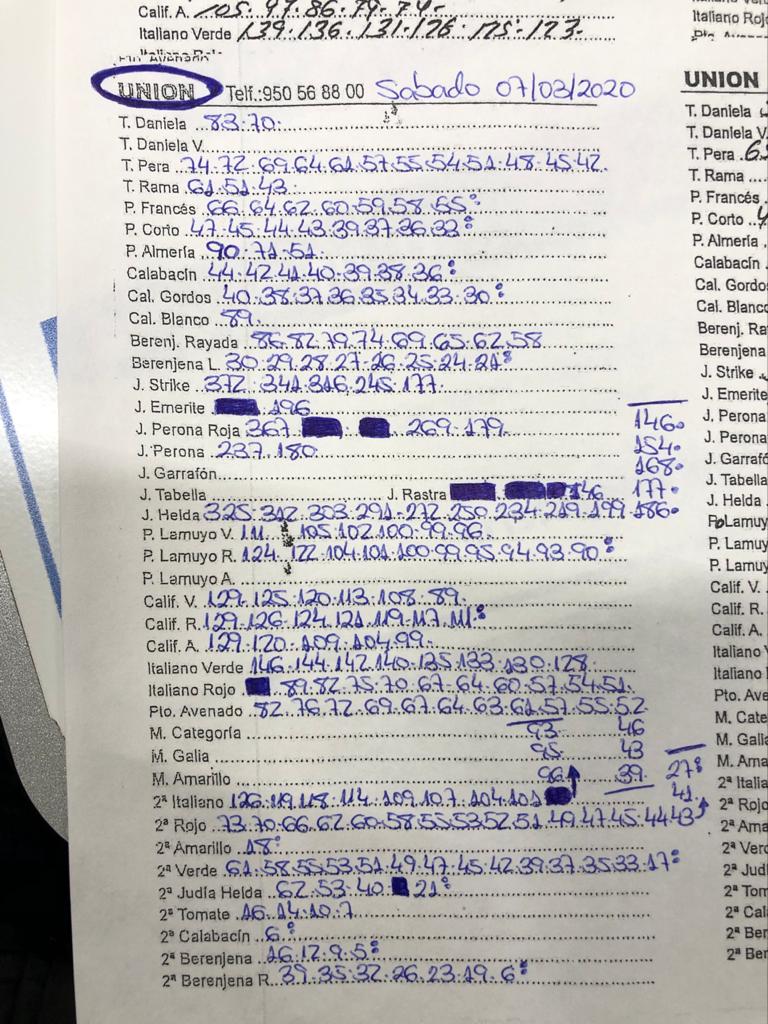 Calif. A. 105. 97. 86. 79. 74.
Italiano Verde 139. 136. 131. 126. 125. 123.
UNION Telf.:950 56 88 00 Sabado 07/03/2020
T. Daniela 83.70.
T. Daniela V.
T. Pera 74.72.69.64.61.57.55.54.51.48.45.42.
T. Rama 61.51.43.
P. Francés 66.64.62.60.59.58.55:
P. Corto 47.45.44.43.39.37.36.33:
P. Almería 90.71.51.
Calabacín 44.42.41.40.39.38.36:
Cal. Gordos 40.38.37.36.35.34.33.30:
Cal. Blanco 89.
Berenj. Rayada 86.82.79.74.69.65.62.58
Berenjena L. 30.29.28.27.26.25.24.21:
J. Strike 372. 341.316.245.177.
J. Emerite 196.
J. Perona Roja 367 269.179. 146.
J. Perona 237.180. 154.
J. Garrafón 168.
J. Tabella J. Rastra 186 177.
J. Helda 325.312.303.291.272.250.234.219.199.186.
P. Lamuyo V. 111. 105.102.100.99.96.
P. Lamuyo R. 124.122.104.101.100.99.95.94.93.90:
P. Lamuyo A.
Calif. V. 129.125.120.113.108.89.
Calif. R. 129.126.124.121.119.117.111:
Calif. A. 129.120.109.104.99.
Italiano Verde 146.144.142.140.135.133.130.128.
Italiano Rojo 89.82.75.70.67.64.60.57.54.51.
Pto. Avenado 82.76.72.69.67.64.63.61.57.55.52.
M. Categoría 93 46
M. Galia 95. 43
M. Amarillo 96 39. 27:
2ª Italiano 123.119.118.114.109.107.104.101 41.
2ª Rojo 73.70.66.62.60.58.55.53.52.51.49.47.45.44.43
2ª Amarillo 18:
2ª Verde 61.58.55.53.51.49.47.45.42.39.37.35.33.17:
2ª Judía Helda 62.53.40. 21:
2ª Tomate 16.14.10.7
2ª Calabacín 6:
2ª Berenjena 16.12.9.5:
2ª Berenjena R. 39.35.32.26.23.19.6:
Italiano Rojo
UNION
T. Daniela
T. Daniela V.
T. Pera
T. Rama
P. Francés
P. Corto
P. Almería
Calabacín
Cal. Gordo
Cal. Blanco
Berenj. Ra
Berenjena
J. Strike
J. Emerite
J. Perona
J. Perona
J. Garrafó
J. Tabella
J. Helda
P. Lamuy
P. Lamuy
P. Lamuy
Calif. V.
Calif. R.
Calif. A.
Italiano V
Italiano
Pto. Ave
M. Cate
M. Galia
M. Ama
2ª Italia
2ª Rojo
2ª Ama
2ª Verd
2ª Judí
2ª Tom
2ª Cal
2ª Ber
2ª Ber